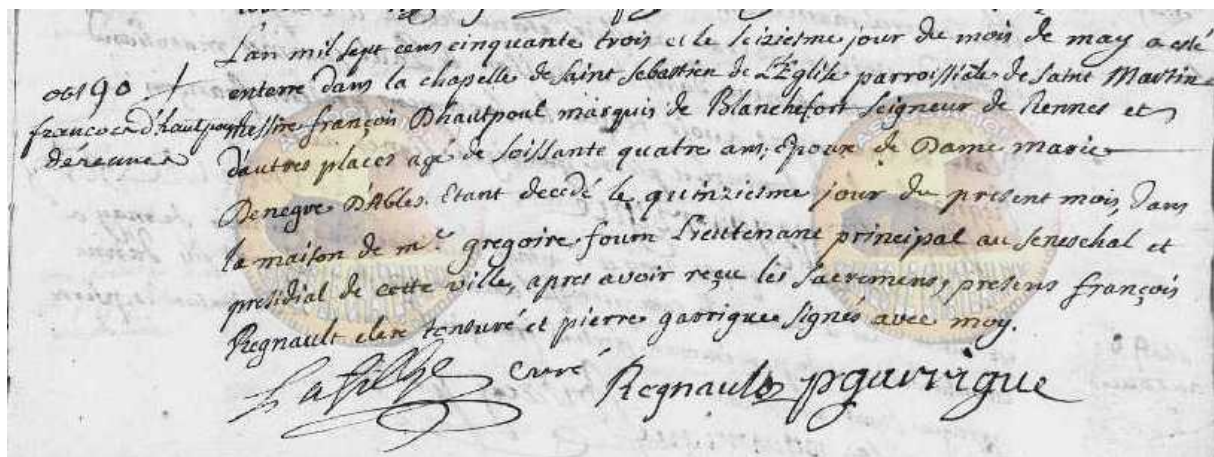 L'an mil sept cens cinquante trois et le seiziesme jour du mois de may a esté
enterré dans la chapelle de saint sebastien de L'Eglise parroissiale de saint Martin
messire françois Dhautpoul marquis de Blanchefort seigneur de Rennes et
d'autres places agé de soissante quatre ans, Epoux de Dame marie
Denegre D'Ables. Etant decedé le quinziesme jour du present mois, dans
la maison de me. gregoire fourn Lieutenant principal au seneschal et
presidial de cette ville, apres avoir reçu les sacremens, presens françois
Regnault clerc tonsuré et pierre garrigue signés avec moy.
françois d'hautpoul
curé Regnault pgarrigue